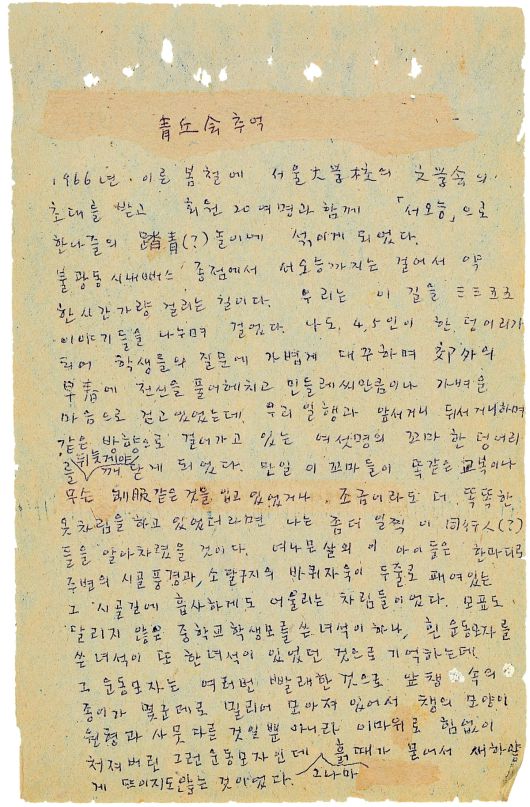 靑丘会 추억
1966년. 이른 봄철에 서울大學校의 文學会의
초대를 받고 회원 20여명과 함께 「서오능」으로
한나절의 踏靑(?)놀이에 섞이게 되었다.
불광동 시내뻐스 종점에서 서오능까지는 걸어서 약
한시간가량 걸리는 길이다. 우리는 이 길을 三三五五
이야기들을 나누며 걸었다. 나도 4,5인이 한 덩이리가
되어 학생들의 질문에 가볍게 대꾸하며 郊外의
早春에 전신을 풀어헤치고 민들레씨만큼이나 가벼운
마음으로 걷고 있었는데, 우리 일행과 앞서거니 뒤서거니하며
같은 방향으로 걸어가고 있는 여섯명의 꼬마 한 덩어리
를 뒤늦게야 깨닫게 되었다. 만일 이 꼬마들이 똑같은 교복이나
무슨 制服같은 것을 입고 있었거나, 조금이라도 더 똑똑한
옷차림을 하고 있었더라면 나는 좀더 일찍 이 同行人(?)
들을 알아차렸을 것이다. 여나믄살의 이 아이들은 한마디로
주변의 시골풍경과, 소달구지의 바퀴자욱이 두줄로 패여있는
그 시골길에 흡사하게도 어울리는 차림들이었다. 모표도
달리지 않은 중학교학생모를 쓴 녀석이 하나, 흰 운동모자를
쓴 녀석이 또 한녀석이 있었던 것으로 기억하는데,
그 운동모자는 여러번 빨래한 것으로 앞챙 속의
종이가 몇군데로 밀리어 모아져 있어서 챙의 모양이
원형과 사뭇 다른 것일 뿐 아니라 이마위로 힘없이
처져버린 그런 운동모자인데 그나마 흙때가 묻어서 새하얗
게 뜨이지도않는 것이었다.